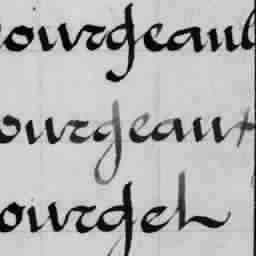 ourgeaul
ourgeaux
ourgel